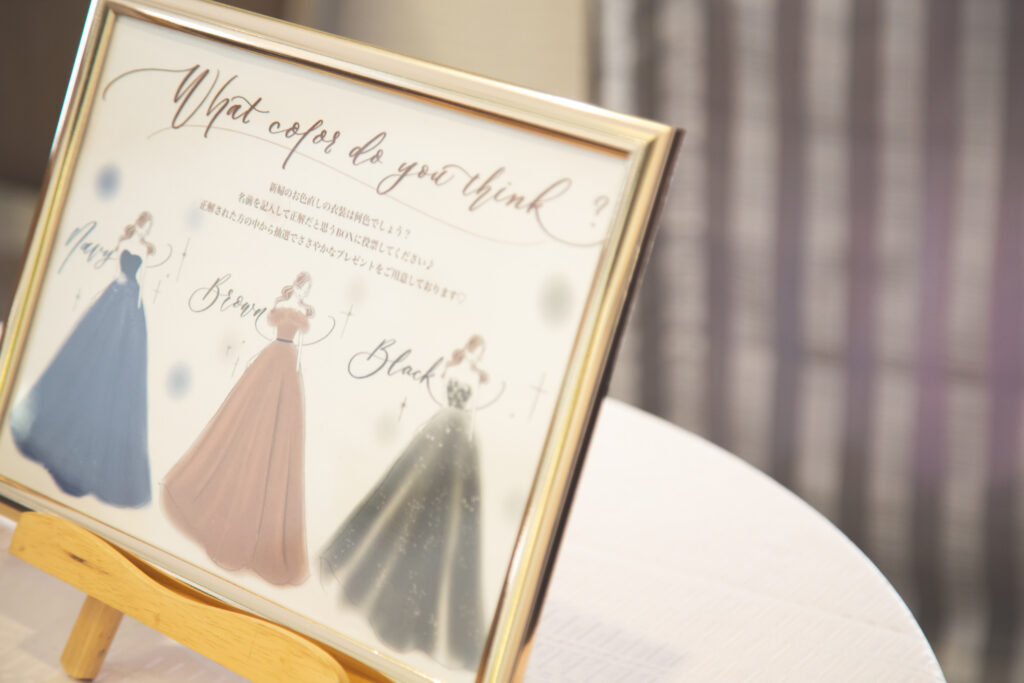 What color do you think ?
新婦のお色直しの衣装は何色でしょう？
名前を記入して正解だと思うBOXに投票してください♪
正解された方の中から抽選でささやかなプレゼントをご用意しております♡
Navy
Brown
Black